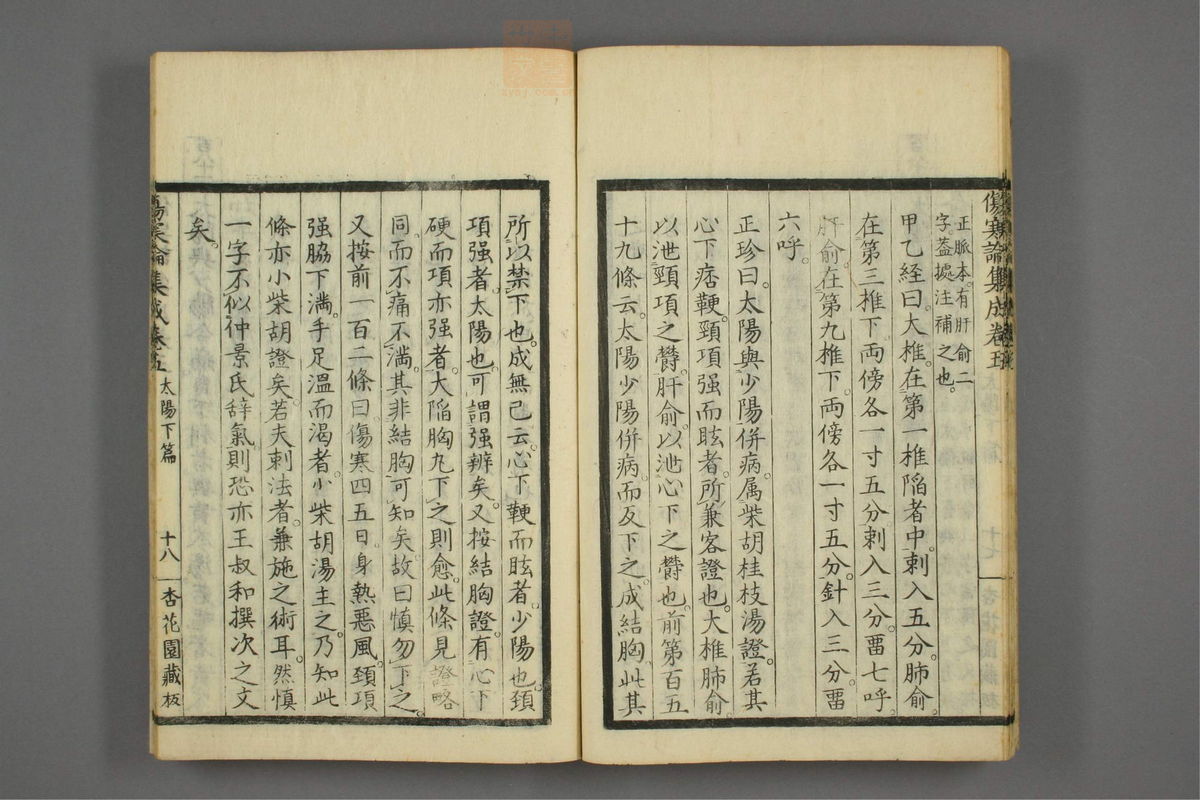 傷寒論集成卷五
正脈本有肝俞二
字蓋據注補之也
甲乙経曰大椎在第一椎陷者中刺入五分肺俞
在第三椎下両傍各一寸五分刺入三分畱七呼
肝俞在第九椎下両傍各一寸五分針入三分畱
六呼
正珍曰太陽與少陽併病属柴胡桂枝湯證若其
心下痞鞕頸項强而眩者所兼客證也大椎肺俞
以泄頸項之欝肝俞以泄心下之欝也前第百五
十九條云太陽少陽併病而反下之成結胸此其
所以禁下也成無己云心下鞕而眩者少陽也頸
項强者太陽也可謂强辨矣又按結胸證有心下
硬而項亦强者大陷胸丸下之則愈此條見證略
同而不痛不満其非結胸可知矣故曰慎勿下之
又按前一百二條曰傷寒四五日身熱悪風頚項
强脇下満手足温而渴者小柴胡湯主之乃知此
條亦小柴胡證矣若夫刺法者兼施之術耳然慎
一字不似仲景氏辞氣則恐亦王叔和撰次之文
矣
傷寒論集成卷五 太陽下篇 十八 杏花園藏板